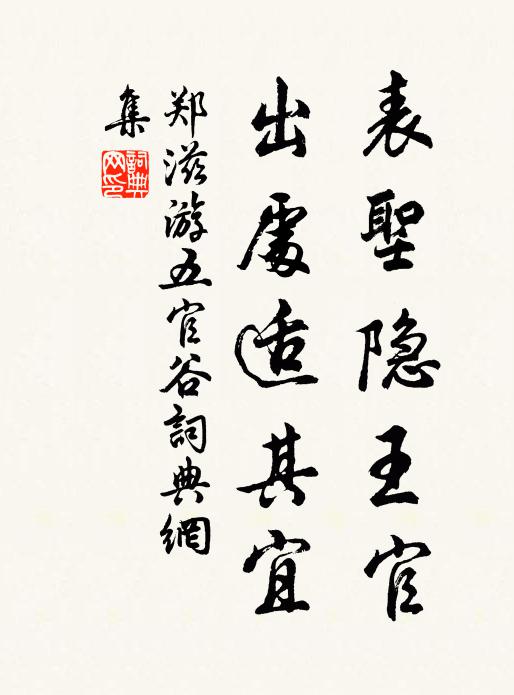 表聖隐王官
出處适其宜
郑滋游五官谷詞典網
集
詞典网印